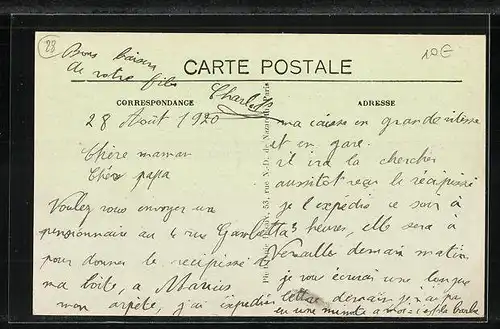 28
10€
Bons baisers
de votre fils
Charles
CARTE POSTALE
CORRESPONDANCE
ADRESSE
28 Août 1920
Chère maman
Cher papa
Voulez vous envoyer un
pensionnaire au 4 rue Gambetta
pour donner le récipissé
ma boîte, a
mon arpète, j'ai expédié
ma caisse en grande vitesse
et en gare.
il ira la chercher
aussitot reçu le récipissé
je l'expédie ce soir à
3 heures, elle sera à
Versailles demain matin.
je vous écrirai une longue
lettre demain, je n'ai pas
une minute a moi
53, rue N.-D. de Nazareth, Paris